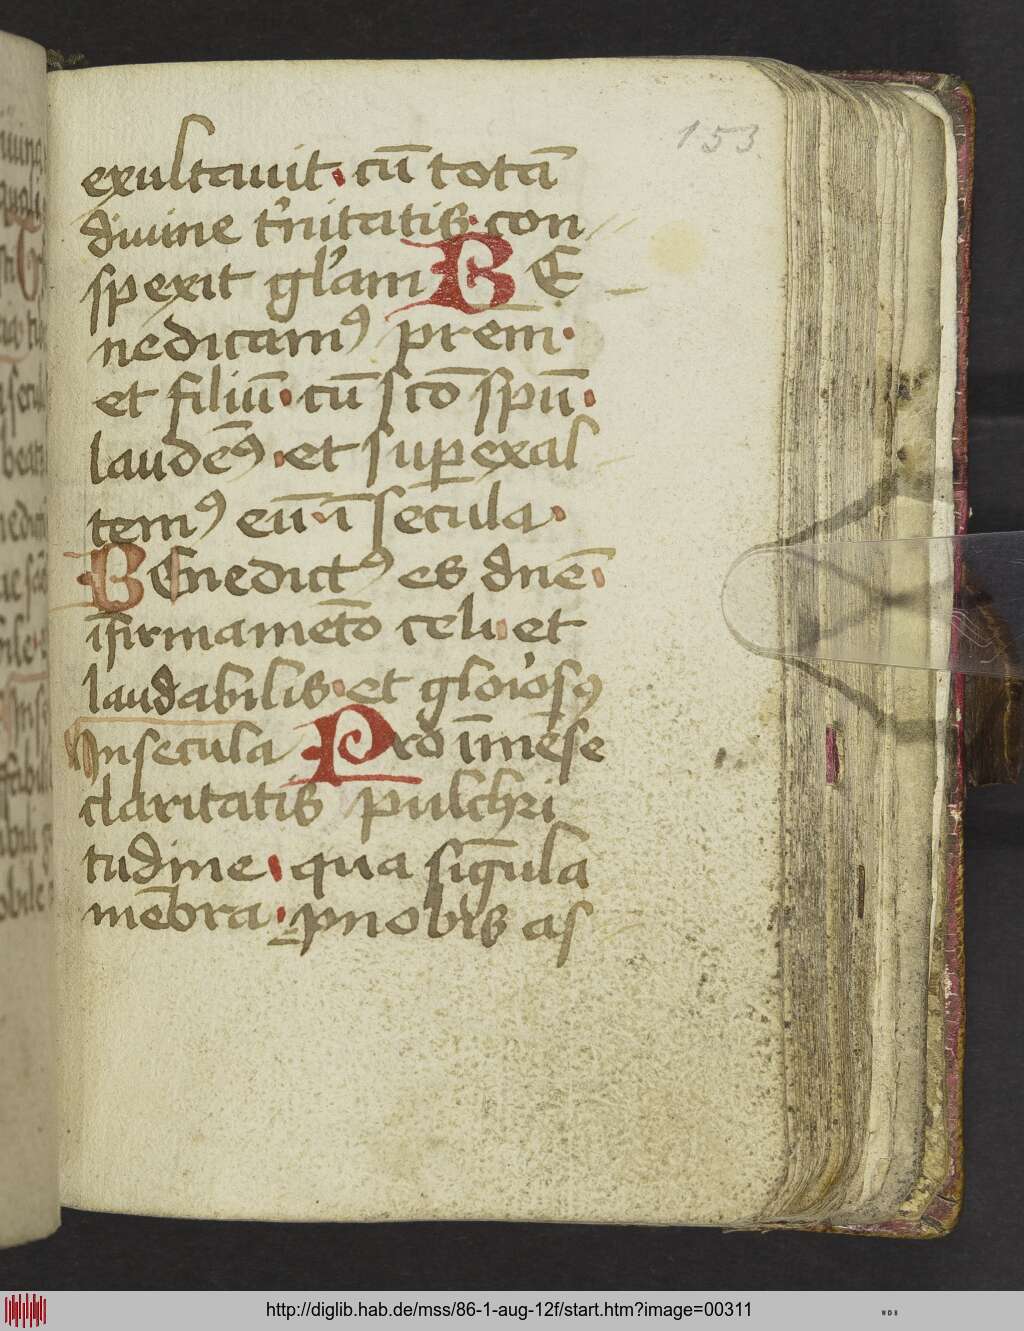 153
exultauit · cū totā
diuine tʼnitatis · con
spexit glʼam BE
nedicamꝰ prem̄ ·
et filiū · cū sco̅ spū ·
laudēꝰ · et superexal
temꝰ eū · ī secula ·
BEnedictꝰ es dn̄e ·
ī firmamēto celi · et
laudabilis · et gloʼiosꝰ
In secula Pro īmēse
claritatis pulchri
tudine · qua singula
mēbra · pnobis as
http://diglib.hab.de/mss/86-1-aug-12f/start.htm?image=00311